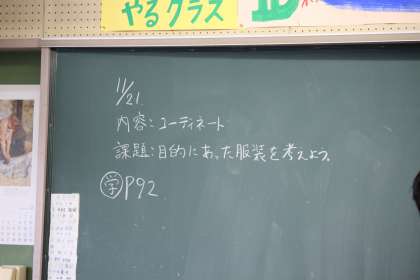 やるクラス
11/21.
内容:コーディネート
課題:目的にあった服装を考えよう。
学P92